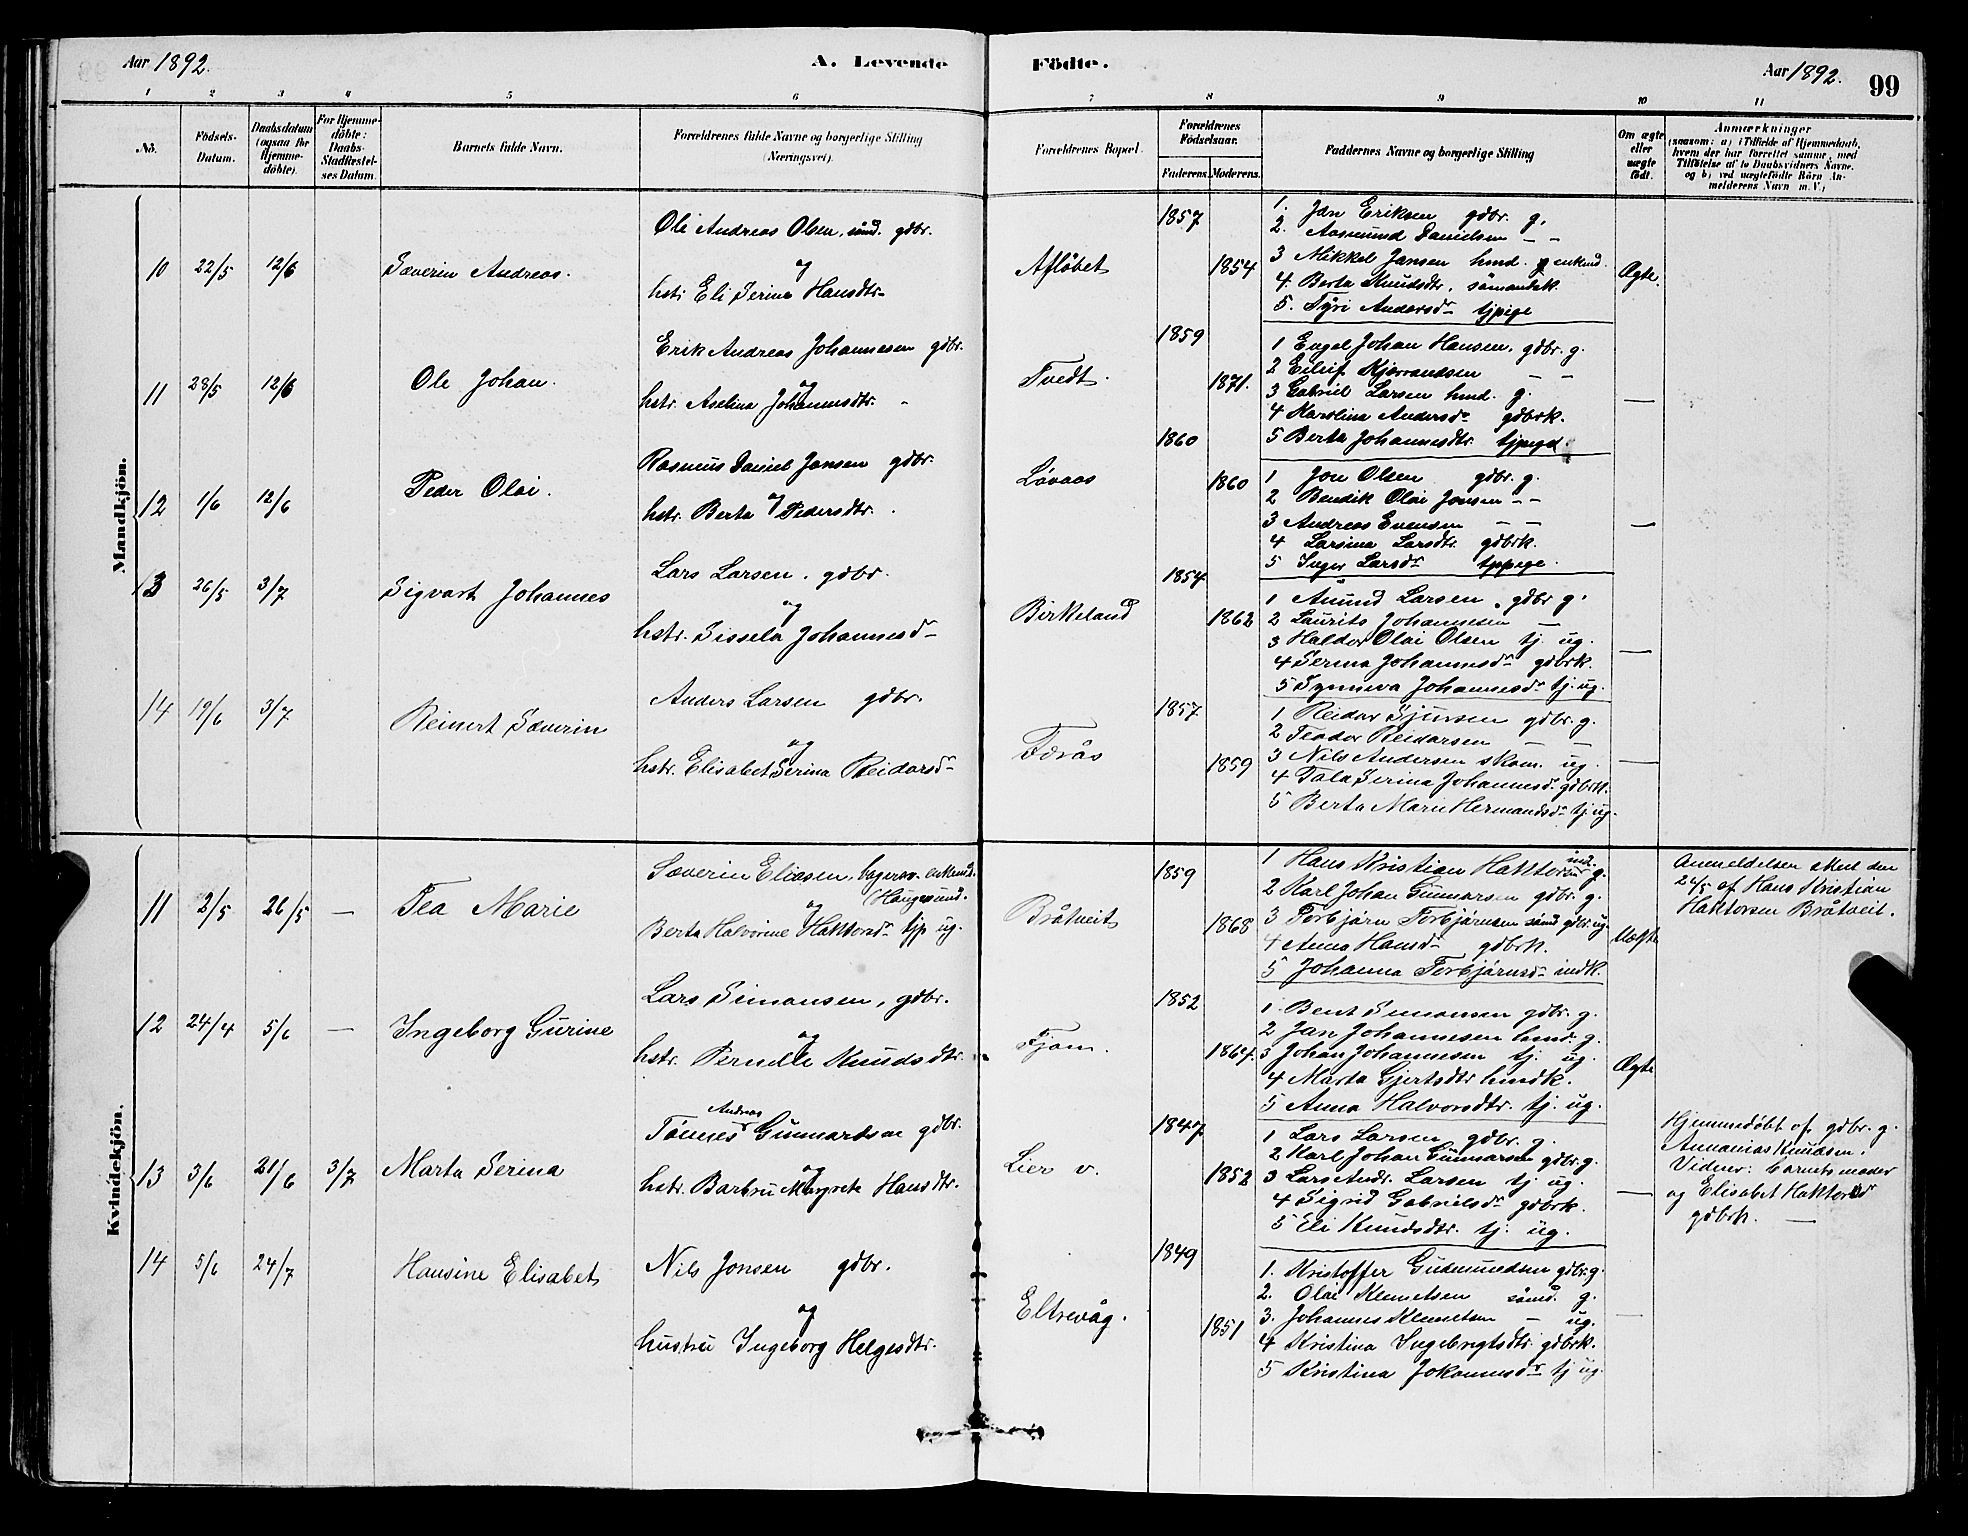 Aar 1892. A. Levende Födte. Aar 1892. 99
1 2 3 4 5 6 7 8 9 10 11
No. Födsels-Datum. Daabsdatum (ogsaa for Hjemme-döbte). For Hjemme-döbte: Daabs-Stadfæstel-ses Datum. Barnets fulde Navn. Forældrenes fulde Navne og borgerlige Stilling (Næringsvei). Forældrenes Bopæl. Forældrenes Födselsaar. Faderens. Moderens. Faddernes Navne og borgerlige Stilling Om ægte eller uægte födt. Anmærkninger (saasom: a) i Tilfælde af Hjemmedaab, hvem der har forrettet samme, med Tilföielse af to Daabsvidners Navne, og b) ved uægtefödte Börn An-melderens Navn m. V.)
Mandkjön.
10 22/5 12/6 Sæverin Andreas.
Ole Andreas Olsen, sömd. gdbr.
og
hstr. Eli Serina Hansdtr
Aflöbet 1857 1854
1. Jan Eriksen gdbr. g.
2. Aasmund Danielsen — —
3 Mikkel Jansen hmd. g enkmd.
4. Berta Knudsdtr, sömandsk.
5. Tyri Andersd tjpige
Ægte.
11 28/5 12/6 Ole Johan.
Erik Andreas Johannesen gdbr.
og
hstr. Aselina Johannesdtr.
Tvedt. 1859 1871.
1 Engel Johan Hansen, gdbr. g.
2 Eilif Kjerrandsen — —
3 Gabriel Larsen hmd. g.
4 Karolina Andersd gdbrk.
5 Berta Johannesdtr tjpige
—
12 1/6 12/6 Peder Olai.
Rasmus Daniel Jansen gdbr.
og
hstr. Berta Pedersdtr.
Lövaas 1860 1860
1 Jon Olsen gdbr. g.
2 Bendik Olai Jonsen — —
3 Andreas Evensen — —
4 Larsina Larsdtr gdbrk.
5 Inger Larsd tjpige.
—
13 26/5 3/7 Sigvart Johannes
Lars Larsen. gdbr.
og
hstr. Sissela Johannesd
Birkeland 1854 1862
1 Amund Larsen, gdbr g.
2 Laurits Johannesen —
3 Haldor Olai Olsen tj. ug.
4 Serina Johannesd gdbrk.
5 Synneva Johannesd tj. ug.
—
14 19/6 3/7 Reinert Sæverin
Anders Larsen gdbr.
og
hstr. Elisabet Serina Reidarsd
Førås 1857 1859
1 Reidar Sjursen gdbr. g.
2 Teodor Reidarsen — —
3 Nils Andersen skom. ug.
4 Tala Serina Johannesd gdbrk.
5 Berta Marie Hermandsd tj. ug.
—
Kvindekjön.
11 2/5 26/5 — Tea Marie
Sæverin Eliasen, bagersv. enkmd.
og (Haugesund.
Berta Halvorine Haktorsd tjp ug.
Bråtveit 1859 1868
1 Hans Kristian Haktorsen ind. g.
2 Karl Johan Gunnarsen gdbr. g.
3 Torbjörn Torbjörnsen sömd gdbr. ug.
4 Anna Hansd gdbrk.
5 Johanna Torbjörnsd indk.
Uægte
Anmeldelsen skeet den
24/5 af Hans Kristian
Haktorsen Bråtveit.
12 24/4 5/6 — Ingeborg Gurine
Lars Simonsen, gdbr.
og
hstr. Pernille Knudsdtr.
Fjom. 1852 1864.
1 Bent Simonsen gdbr. g.
2 Jan Johannesen hmd. g.
3 Johan Johannesen tj. ug.
4 Marta Gjertsdtr hmdk.
5 Anna Halvorsdtr. tj. ug.
Ægte
13 3/6 21/6 3/7 Marta Serina
Andreas
Tönnes Gunnarsen gdbr.
og
hstr. Barbru Margrete Hansdtr.
Lier v. 1847 1852
1 Lars Larsen gdbr. g.
2 Karl Johan Gunnarsen gdbr. g.
3 Lars Andr. Larsen tj. ug.
4 Sigrid Gabrielsd gdbrk.
5 Eli Knudsdtr. tj. ug.
—
Hjemmedöbt af gdbr. g.
Annanias Knudsen.
Vidner: barnets moder
og Elisabet Haktorsd
gdbrk. —
14 5/6 24/7 Hansine Elisabet
Nils Jonsen gdbr.
og
hustru Ingeborg Helgesdtr.
Eltrevåg. 1849 1851
1. Kristoffer Gudmundsen gdbr. g.
2. Olai Klemetsen sömd. g.
3. Johannes Klemetsen — ug.
4 Kristina Ingebregtsdtr. gdbrk.
5 Kristina Johannesd tj ug.
—